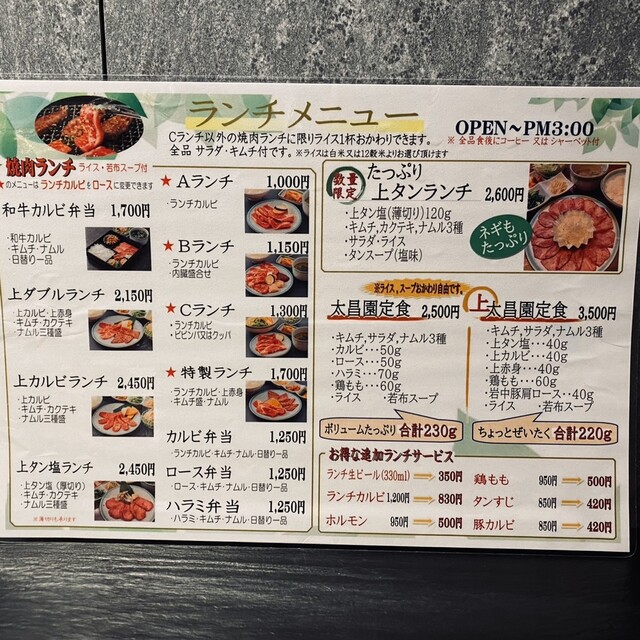 ランチメニュー
Cランチ以外の焼肉ランチに限りライス1杯おかわりできます。
全品 サラダ・キムチ付です。※ライスは白米又は12穀米よりお選び頂けます
OPEN~PM3:00
※ 全品食後にコーヒー 又は シャーベット付
焼肉ランチ ライス・若布スープ付
★のメニューは ランチカルビをロースに変更できます
和牛カルビ弁当 1,700円
・和牛カルビ
・キムチ・ナムル
・日替り一品
上ダブルランチ 2,150円
・上カルビ・上赤身
・キムチ・カクテキ
・ナムル三種盛
上カルビランチ 2,450円
・上カルビ
・キムチ・カクテキ
・ナムル三種盛
上タン塩ランチ 2,450円
・上タン塩(厚切り)
・キムチ・カクテキ
・ナムル三種盛
※薄切りも有ります
★ Aランチ 1,000円
・ランチカルビ
★ Bランチ 1,150円
・ランチカルビ
・内臓盛合せ
★ Cランチ 1,300円
・ランチカルビ
・ビビンバ又はクッパ
★ 特製ランチ 1,700円
・ランチカルビ・上赤身
・キムチ盛・ナムル
カルビ弁当 1,250円
・ランチカルビ・キムチ・ナムル・日替り一品
ロース弁当 1,250円
・ロース・キムチ・ナムル・日替り一品
ハラミ弁当 1,250円
・ハラミ・キムチ・ナムル・日替り一品
数量限定
たっぷり
上タンランチ 2,600円
・上タン塩(薄切り)120g
・キムチ,カクテキ,ナムル3種
・サラダ・ライス
・タンスープ(塩味)
ネギも
たっぷり
※ライス,スープおかわり自由です。
太昌園定食 2,500円
・キムチ,サラダ,ナムル3種
・カルビ・・・50g
・ロース・・・50g
・ハラミ・・・70g
・鶏もも・・・60g
・ライス ・若布スープ
ボリュームたっぷり 合計230g
上 太昌園定食 3,500円
・キムチ,サラダ,ナムル3種
・上タン塩・・・40g
・上カルビ・・・40g
・上赤身・・・40g
・鶏もも・・・60g
・岩中豚肩ロース・・40g
・ライス ・若布スープ
ちょっとぜいたく 合計220g
お得な追加ランチサービス
ランチ生ビール(330ml) 350円
ランチカルビ 1,200円 830円
ホルモン 950円 500円
鶏もも 950円 500円
タンすじ 850円 420円
豚カルビ 850円 420円